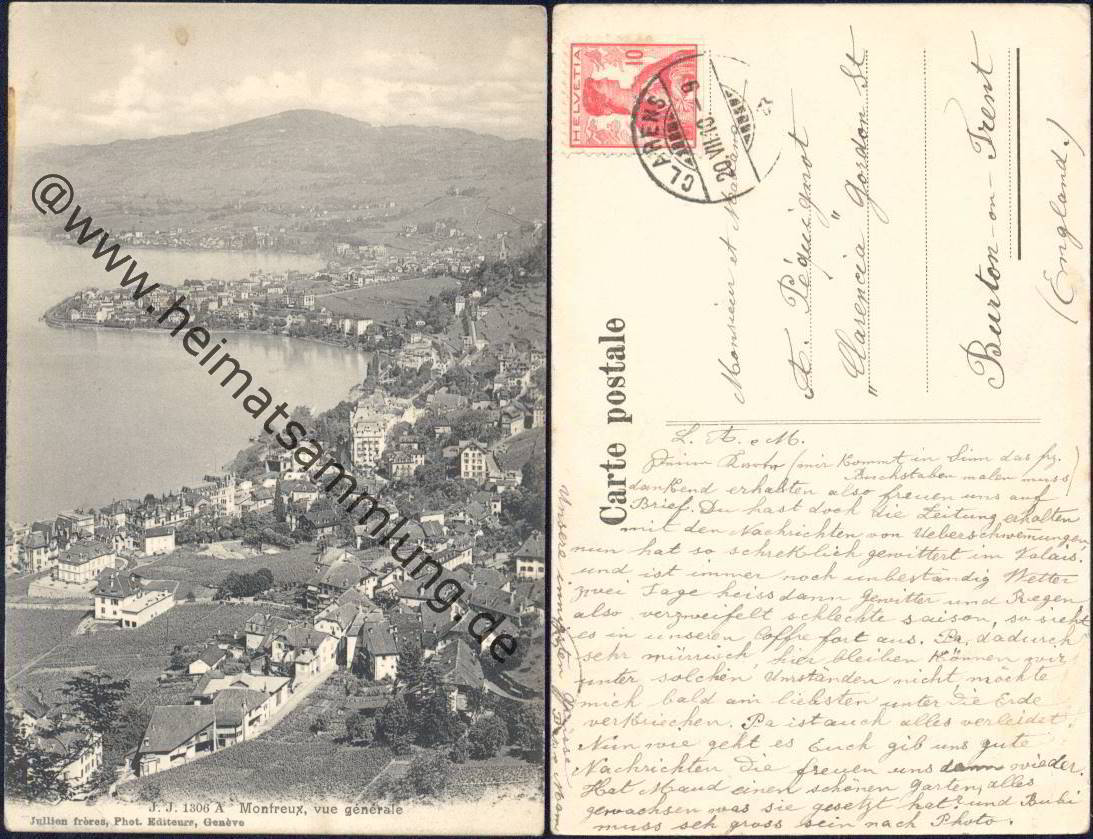 @www.heimatsammlung.de
J. J. 1306 A Montreux, vue générale
Jullien frères, Phot. Editeurs, Genève
HELVETIA
10
CLARENS
20.VII.10.-9
Carte postale
Monsieur et Madame
A. Péquignot
"Clarencia" Gordon St
Burton-on-Trent
(England.)
L. A. & M.
(mir kommt in Sinn das frz.
Buchstaben malen muss)
dankend erhalten also freuen uns auf
Brief. Du hast doch die Zeitung erhalten
mit den Nachrichten von Ueberschwemungen
nun hat so schreklich gewittert im Valais
und ist immer noch unbeständig Wetter
zwei Tage heiss dann Gewitter und Regen
also verzweifelt schlechte saison, so sieht
es in unseren Coffre fort aus. Pa. dadurch
sehr mürrisch, hier bleiben können wir
unter solchen Umständen nicht mochte
mich bald am liebsten unter die Erde
verkriechen. Pa ist auch alles verleidet.
Nun wie geht es Euch gib uns gute
Nachrichten die freuen uns wieder.
Hat Maud einen schönen Garten, alles
gewachsen was sie gesetzt hat? und Bubi
muss seh gross sein nach Photo.